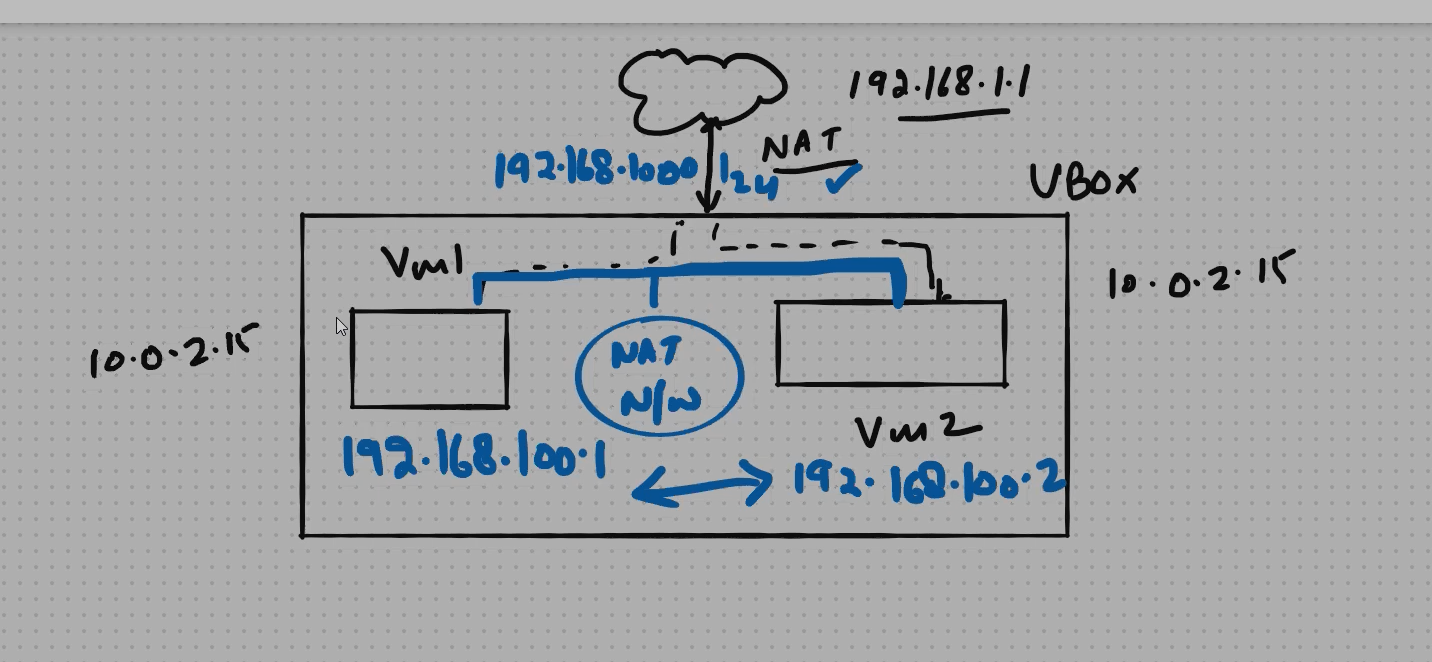 192.168.1.1
NAT
192.168.1000/24
VBOX
Vm1
10.0.2.15
10.0.2.15
NAT
N/W
Vm2
192.168.100.1
192.168.100.2